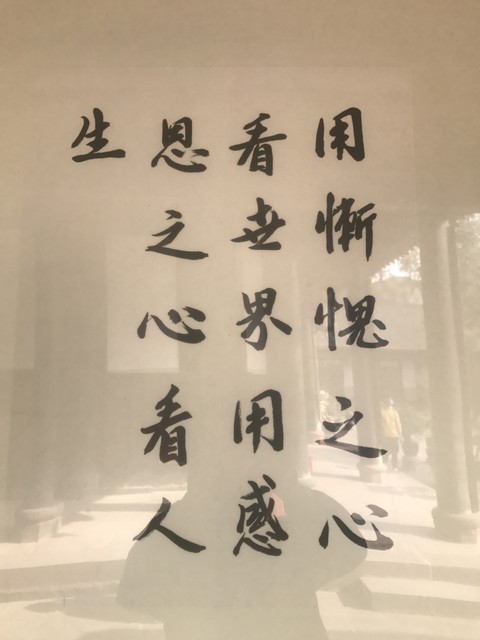 用慚愧之心
看世界用感
恩之心看人
生